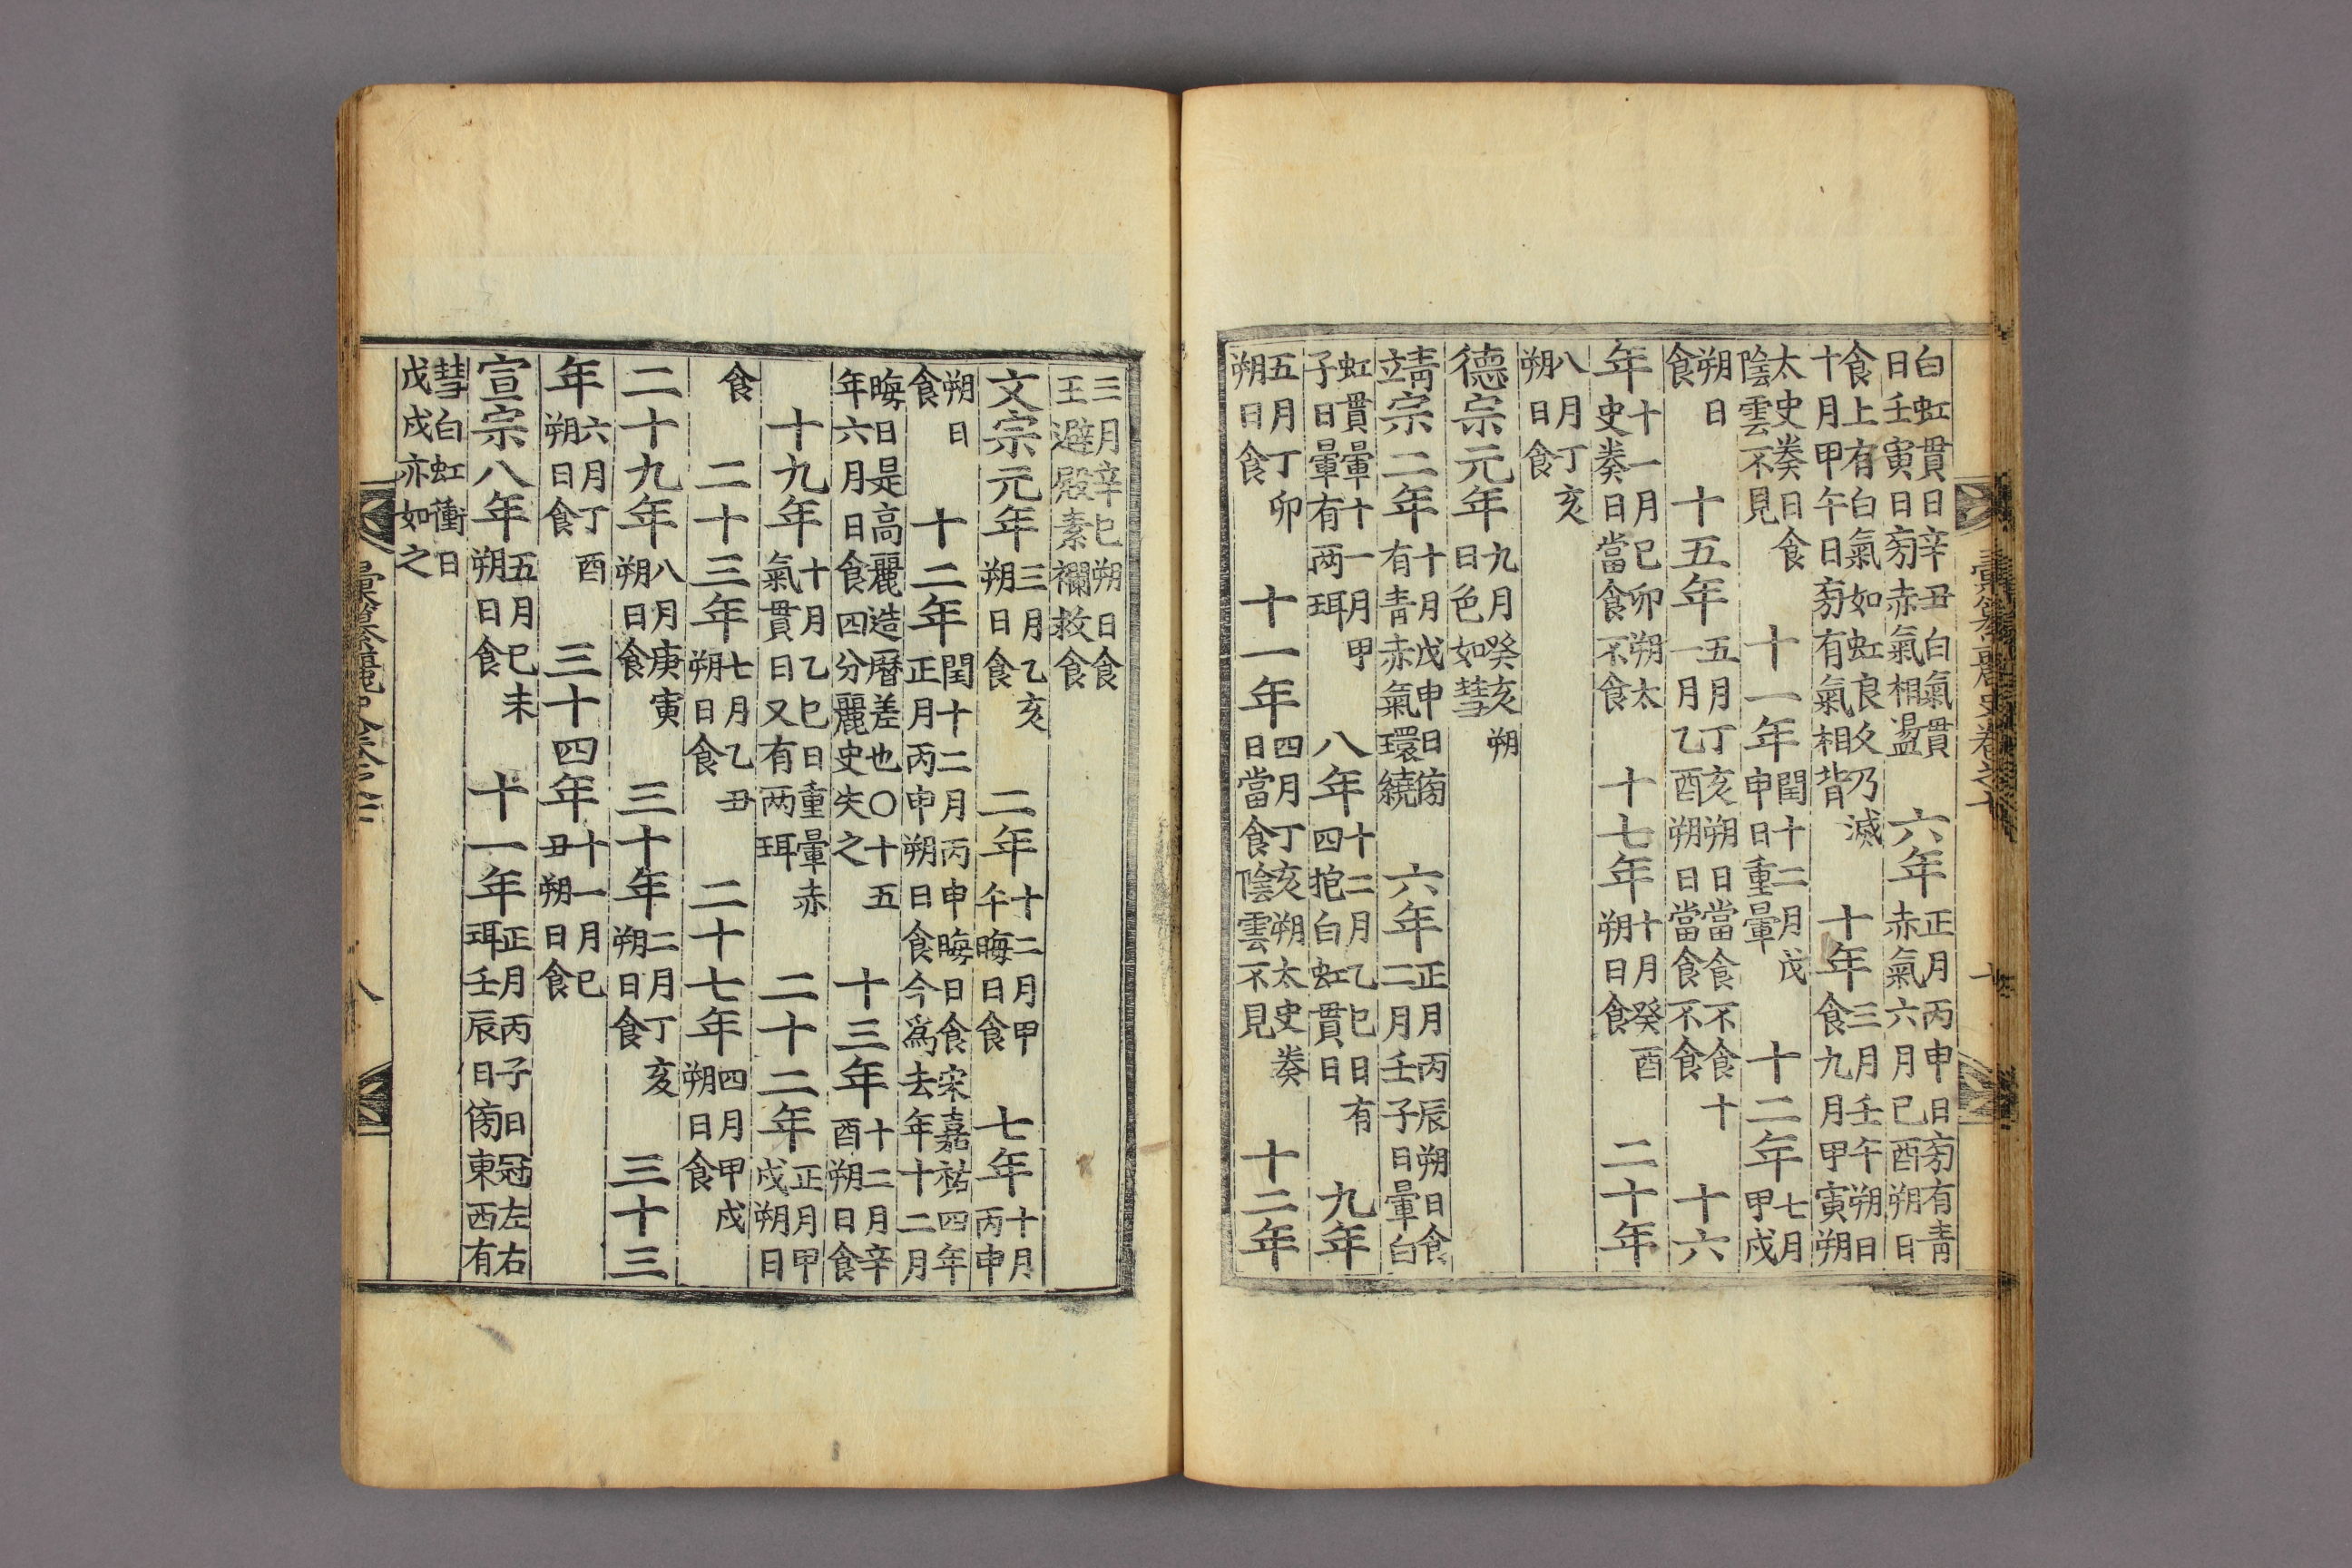 白虹貫日辛丑白氣貫日壬寅日旁赤氣相盪 六年 正月丙申日旁有青赤氣六月己酉朔日
食上有白氣如虹良久乃滅十月甲午日旁有氣相背 十年 三月壬午朔日食九月甲寅朔
太史奏日食陰雲不見 十一年 閏十二月戊申日重暈 十二年 七月甲戌
朔日食 十五年 五月丁亥朔日當食不食十一月乙酉朔日當食不食 十六
年 十一月己卯朔太史奏日當食不食 十七年 十月癸酉朔日食 二十年
八月丁亥朔日食
德宗元年 九月癸亥朔日色如彗
靖宗二年 十月戊申日傍有青赤氣環繞 六年 正月丙辰朔日食二月壬子日暈白
虹貫暈十一月甲子日暈有两珥 八年 十二月乙巳日有四抱白虹貫日 九年
五月丁卯朔日食 十一年 四月丁亥朔太史奏日當食陰雲不見 十二年
三月辛巳朔日食王避殿素襴救食
文宗元年 三月乙亥朔日食 二年 十二月甲午晦日食 七年 十月丙申
朔日食 十二年 閏十二月丙申晦日食宋嘉祐四年正月丙申朔日食今爲去年十二月
晦日是高麗造曆差也○十五年六月日食四分麗史失之 十三年 十二月辛酉朔日食
十九年 十月乙巳日重暈赤氣貫日又有两珥 二十二年 正月甲戌朔日
食 二十三年 七月乙丑朔日食 二十七年 四月甲戌朔日食
二十九年 八月庚寅朔日食 三十年 二月丁亥朔日食 三十三
年 六月丁酉朔日食 三十四年 十一月己丑朔日食
宣宗八年 五月己未朔日食 十一年 正月丙子日冠左右珥壬辰日傍東西有
彗白虹衝日戊戌亦如之